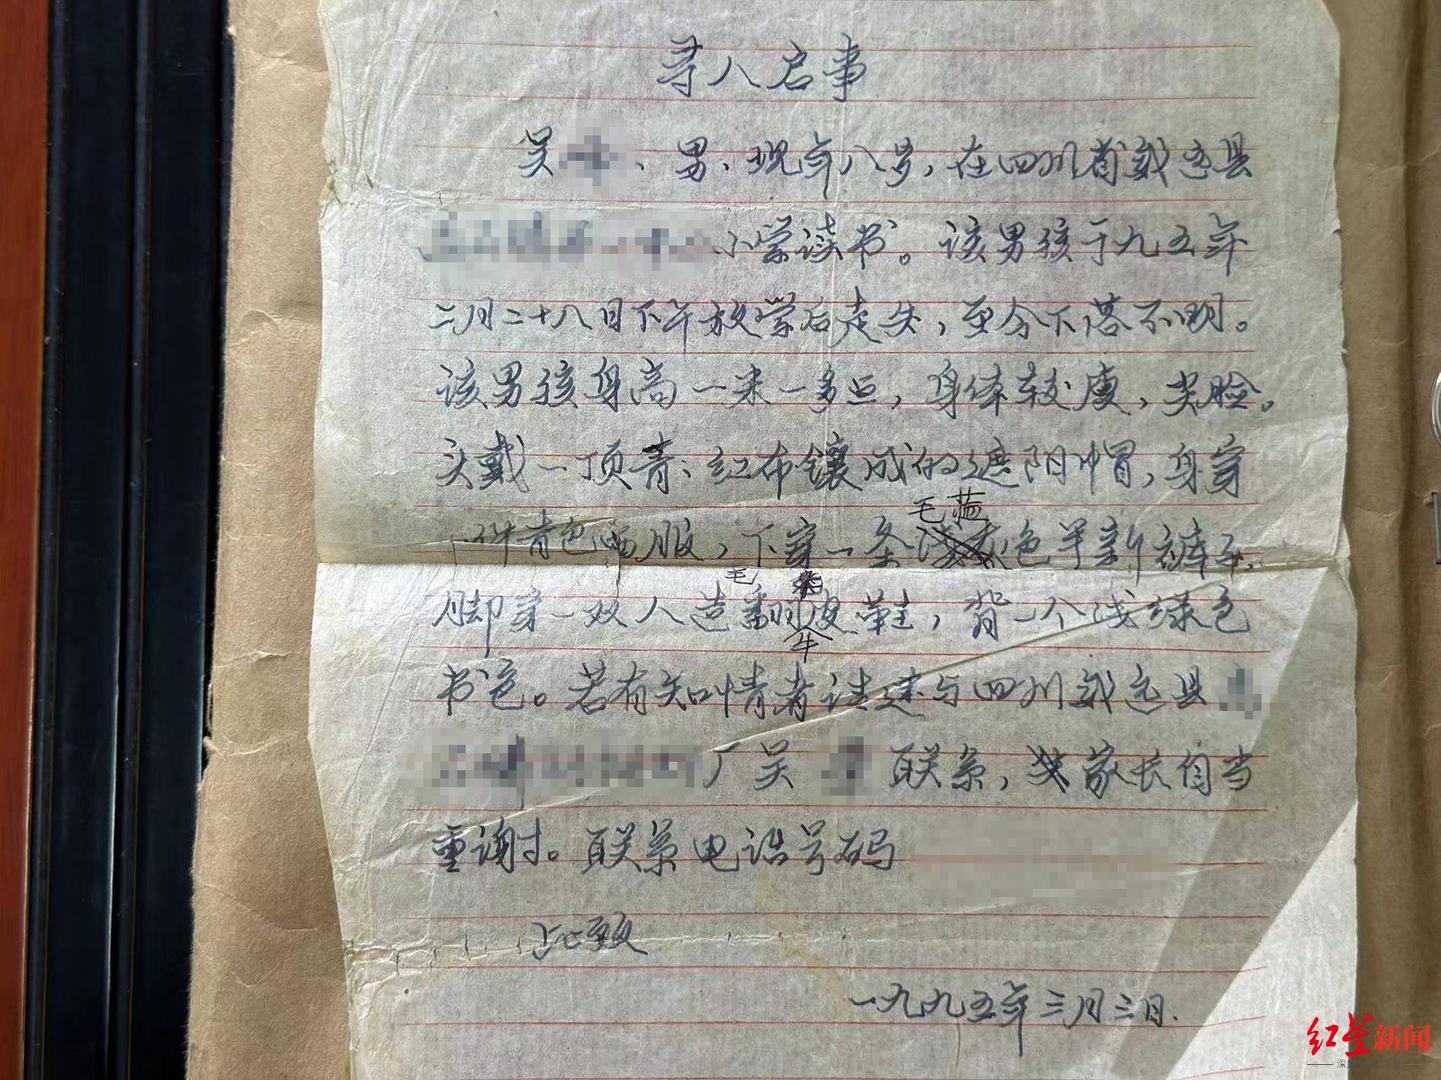 寻人启事
吴 、男、现年八岁,在四川省威远县
小学读书。该男孩于九五年
二月二十八日下午放学后走失,至今下落不明。
该男孩身高一米一多点,身体较瘦,尖脸。
头戴一顶青、红布镶成的遮阳帽,身穿
一件青色西服,下穿一条毛蓝色半新裤子,
脚穿一双人造毛翻牛皮鞋,背一个浅绿色
书包。若有知情者请速与四川威远县
厂吴 联系,家长自当
重谢。联系电话号码
此致
一九九五年三月三日.
红星新闻